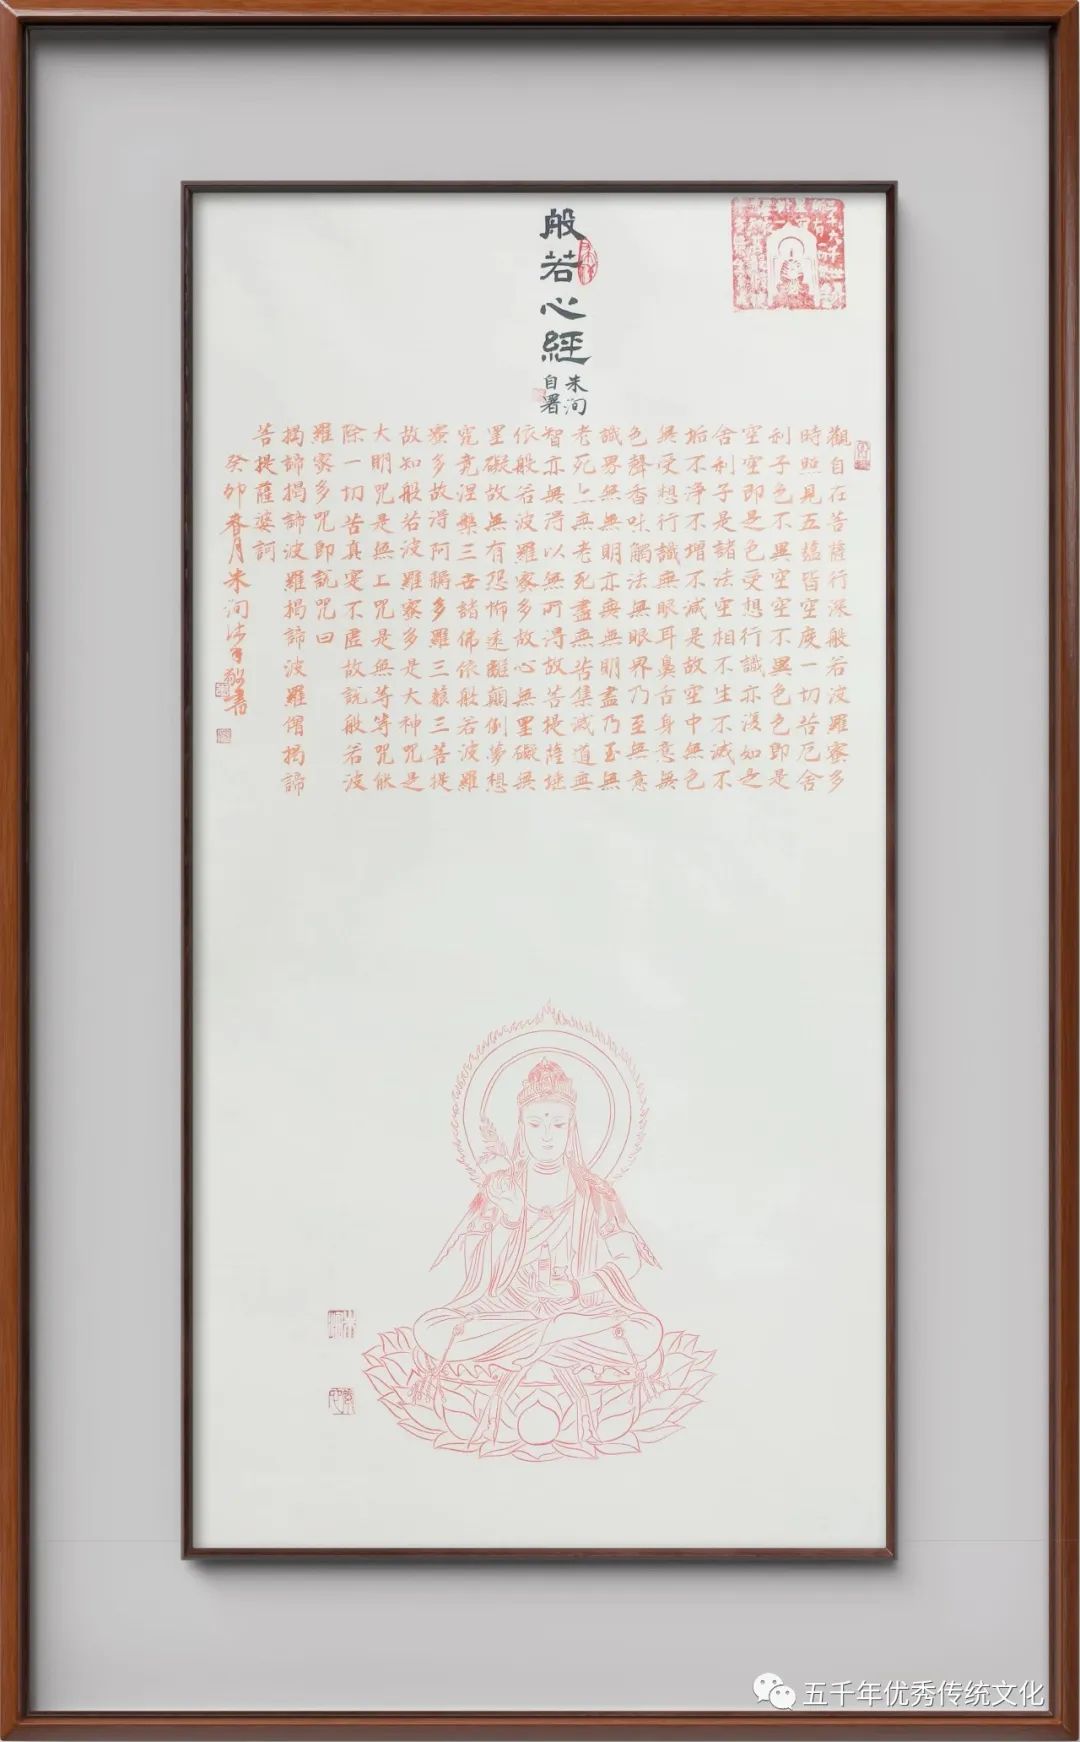 般若心經
朱洵
自署
觀自在菩薩行深般若波羅蜜多
時照見五蘊皆空度一切苦厄舍
利子色不異空空不異色色即是
空空即是色受想行識亦復如是
舍利子是諸法空相不生不滅不
垢不淨不增不減是故空中無色
無受想行識無眼耳鼻舌身意無
色聲香味觸法無眼界乃至無意
識界無無明亦無無明盡乃至無
老死亦無老死盡無苦集滅道無
智亦無得以無所得故菩提薩埵
依般若波羅蜜多故心無罣礙無
罣礙故無有恐怖遠離顛倒夢想
究竟涅槃三世諸佛依般若波羅
蜜多故得阿耨多羅三藐三菩提
故知般若波羅蜜多是大神咒是
大明咒是無上咒是無等等咒能
除一切苦真實不虛故說般若波
羅蜜多咒即說咒曰
揭諦揭諦波羅揭諦波羅僧揭諦
菩提薩婆訶
癸卯春月朱洵沐手敬書
五千年优秀传统文化